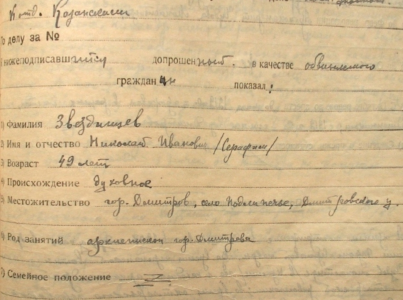 По делу за №
нижеподписавшийся допрошенный в качестве обвиняемого
гражданин показал:
1) Фамилия Звездинцев
2) Имя и отчество Николай Иванович /Серафим/
3) Возраст 49 лет
4) Происхождение духовное
5) Местожительство гор. Дмитров, село Подлипечье, Дмитровского у.
6) Род занятий архиепископ гор. Дмитрова
7) Семейное положение